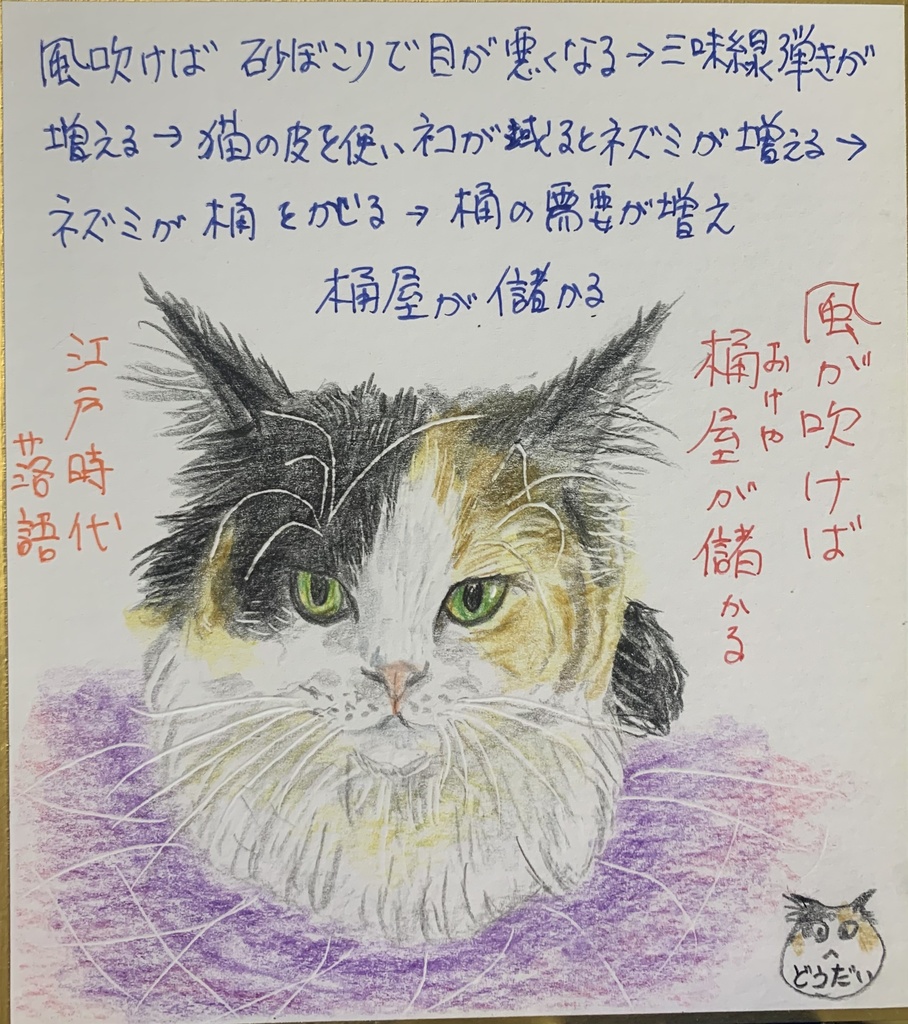 風吹けば 砂ぼこりで目が悪くなる→三味線弾きが
増える→猫の皮を使いネコが減るとネズミが増える→
ネズミが桶をかじる→桶の需要が増え
桶屋が儲かる
風が吹けば
桶屋が儲かる
おけや
江戸時代
落語
どうだい